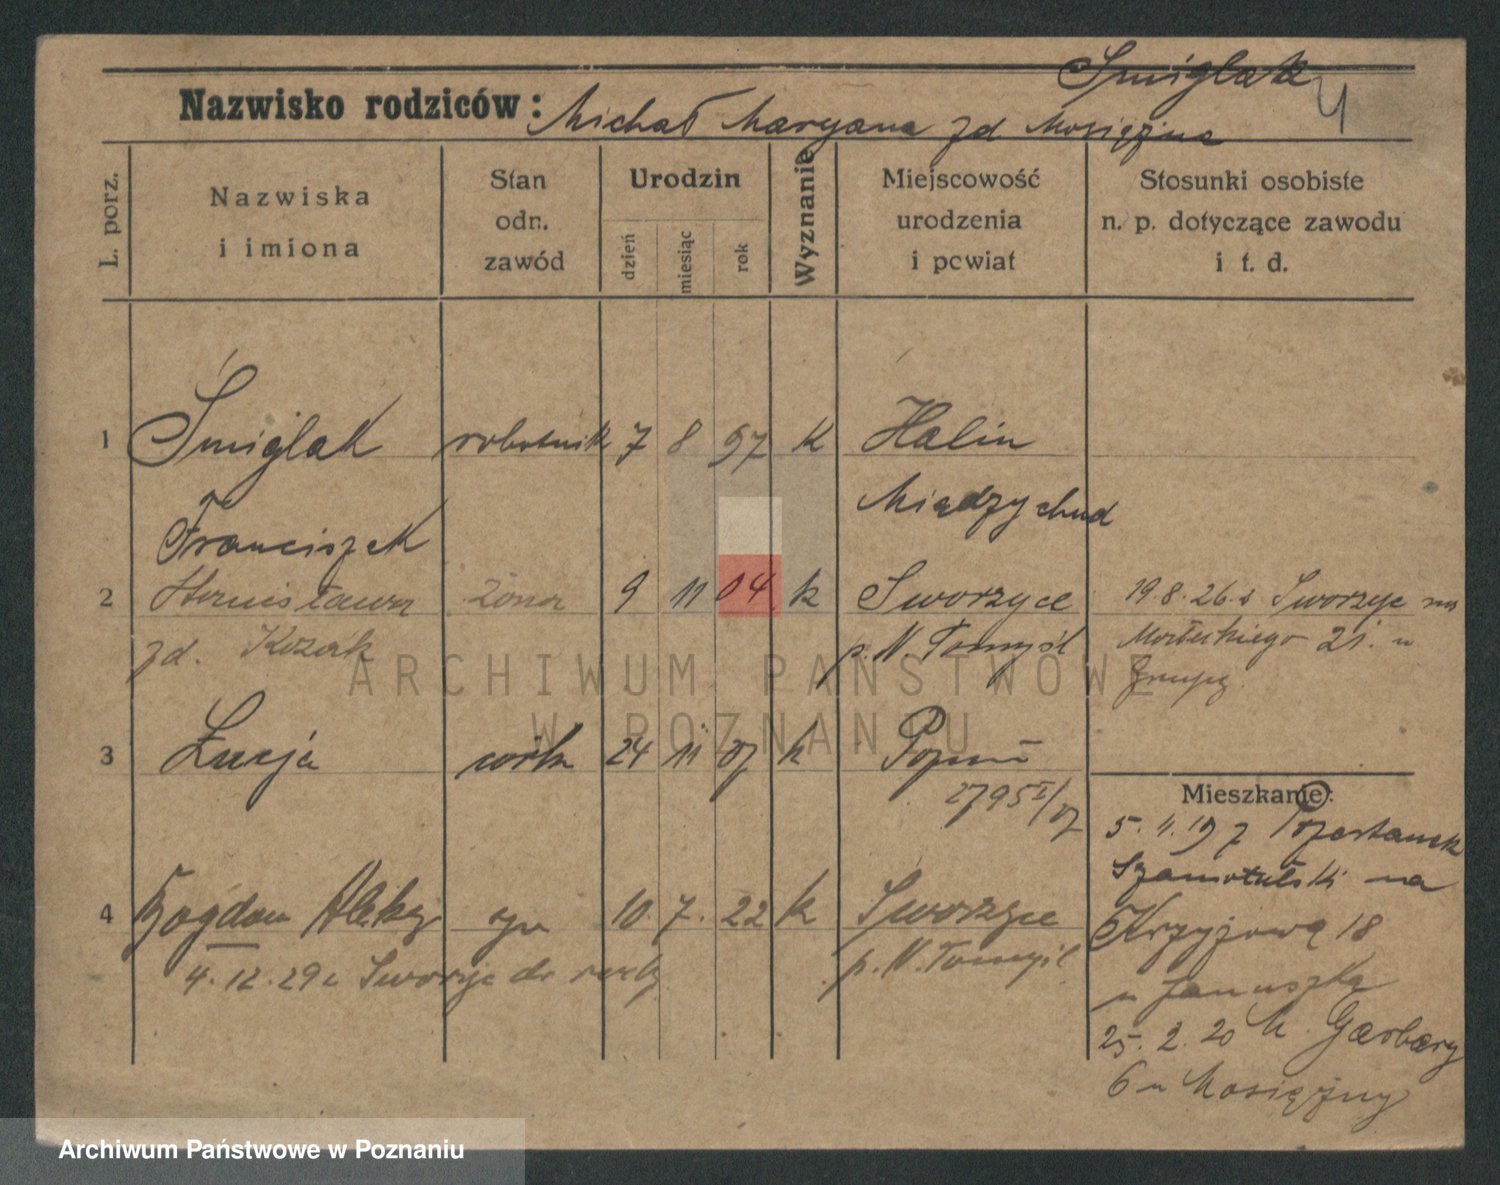 Śmiglak
Nazwisko rodziców: Michał Maryana zd Mosiężna
L. porz.
Nazwiska i imiona
Stan odn. zawód
Urodzin
dzień
miesiąc
rok
Wyznanie
Miejscowość urodzenia i powiat
Stosunki osobiste n. p. dotyczące zawodu i t. d.
1 Śmiglak robotnik 7 8 97 k Halin
Franciszek Międzychud
2 Stanisława żona 9 11 04 k Sworzyce 19.8.26 Sworzyc
zd. Kozak p. N. Tomyśl 21.
3 Łucja córka 24 11 07 k
2795 I/07
Mieszkanie:
5. 4. 19
Szamotulski na
4 Bogdan 10. 7. 22 k Sworzyce Krzyżową 18
4. 12. 29 Sworzyc do p. N. Tomyśl u Januszka
25. 2. 20 Garbary
6 u Mosiężny
ARCHIWUM PAŃSTWOWE
W POZNANIU
Archiwum Państwowe w Poznaniu